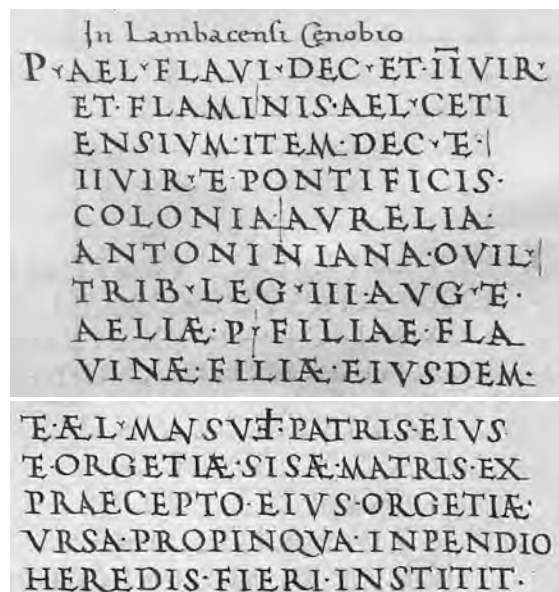 In Lambacensi Cenobio
P·AEL·FLAVI·DEC·ET·IIVIR·
ET·FLAMINIS·AEL·CETI
ENSIVM·ITEM·DEC·E·
IIVIR·E·PONTIFICIS·
COLONIA·AVRELIA·
ANTONINIANA·OVIL·
TRIB·LEG·III·AVG·E·
AELIÆ·P·FILIAE·FLA
VINÆ·FILIÆ·EIVSDEM·
E·ÆL·MAISVET·PATRIS·EIVS
E·ORGETIÆ·SISÆ·MATRIS·EX
PRAECEPTO·EIVS·ORGETIÆ·
VRSA·PROPINQVA·INPENDIO
HEREDIS·FIERI·INSTITIT·